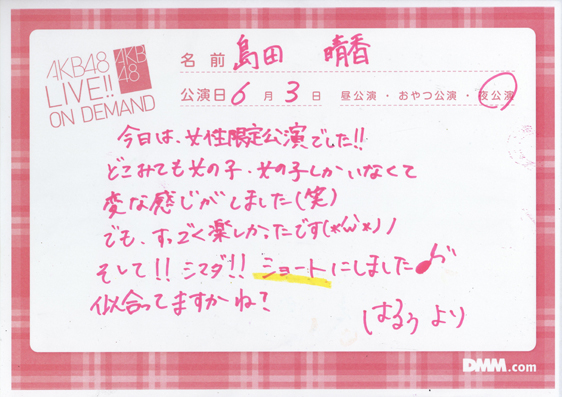 AKB48
LIVE!!
ON DEMAND
AKB
48
名前 島田 晴香
公演日 6月3日 昼公演・おやつ公演・夜公演
今日は、女性限定公演でした!!
どこみても女の子・女の子しかいなくて
変な感じがしました(笑)
でも、すっごく楽しかったです(*'ω'*)ノ
そして!!シマダ!!ショートにしました♪
似合ってますかね?
はるぅより
DMM.com